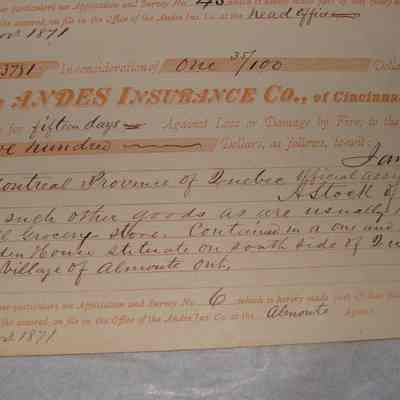 particulars see Application and Survey No. 43 which is hereby made part of this policy
the assured, on file in the Office of the Andes Ins. Co. at the head Office
1871
3781 In consideration of One 35/100 Dolla
ANDES INSURANCE CO., of Cincinna
for fifteen days Against Loss or Damage by Fire, to the
hundred Dollars, as follows, to-wit:
Montreal Province of Quebec Official
A Stock of
such other goods as are usually
Grocery Store. Contained in a one and
House situate on south side of
Village of Almonte Ont.
particulars see Application and Survey No. 6 which is hereby made part of this
the assured, on file in the Office of the Andes Ins. Co. at the Almonte Agency
1871